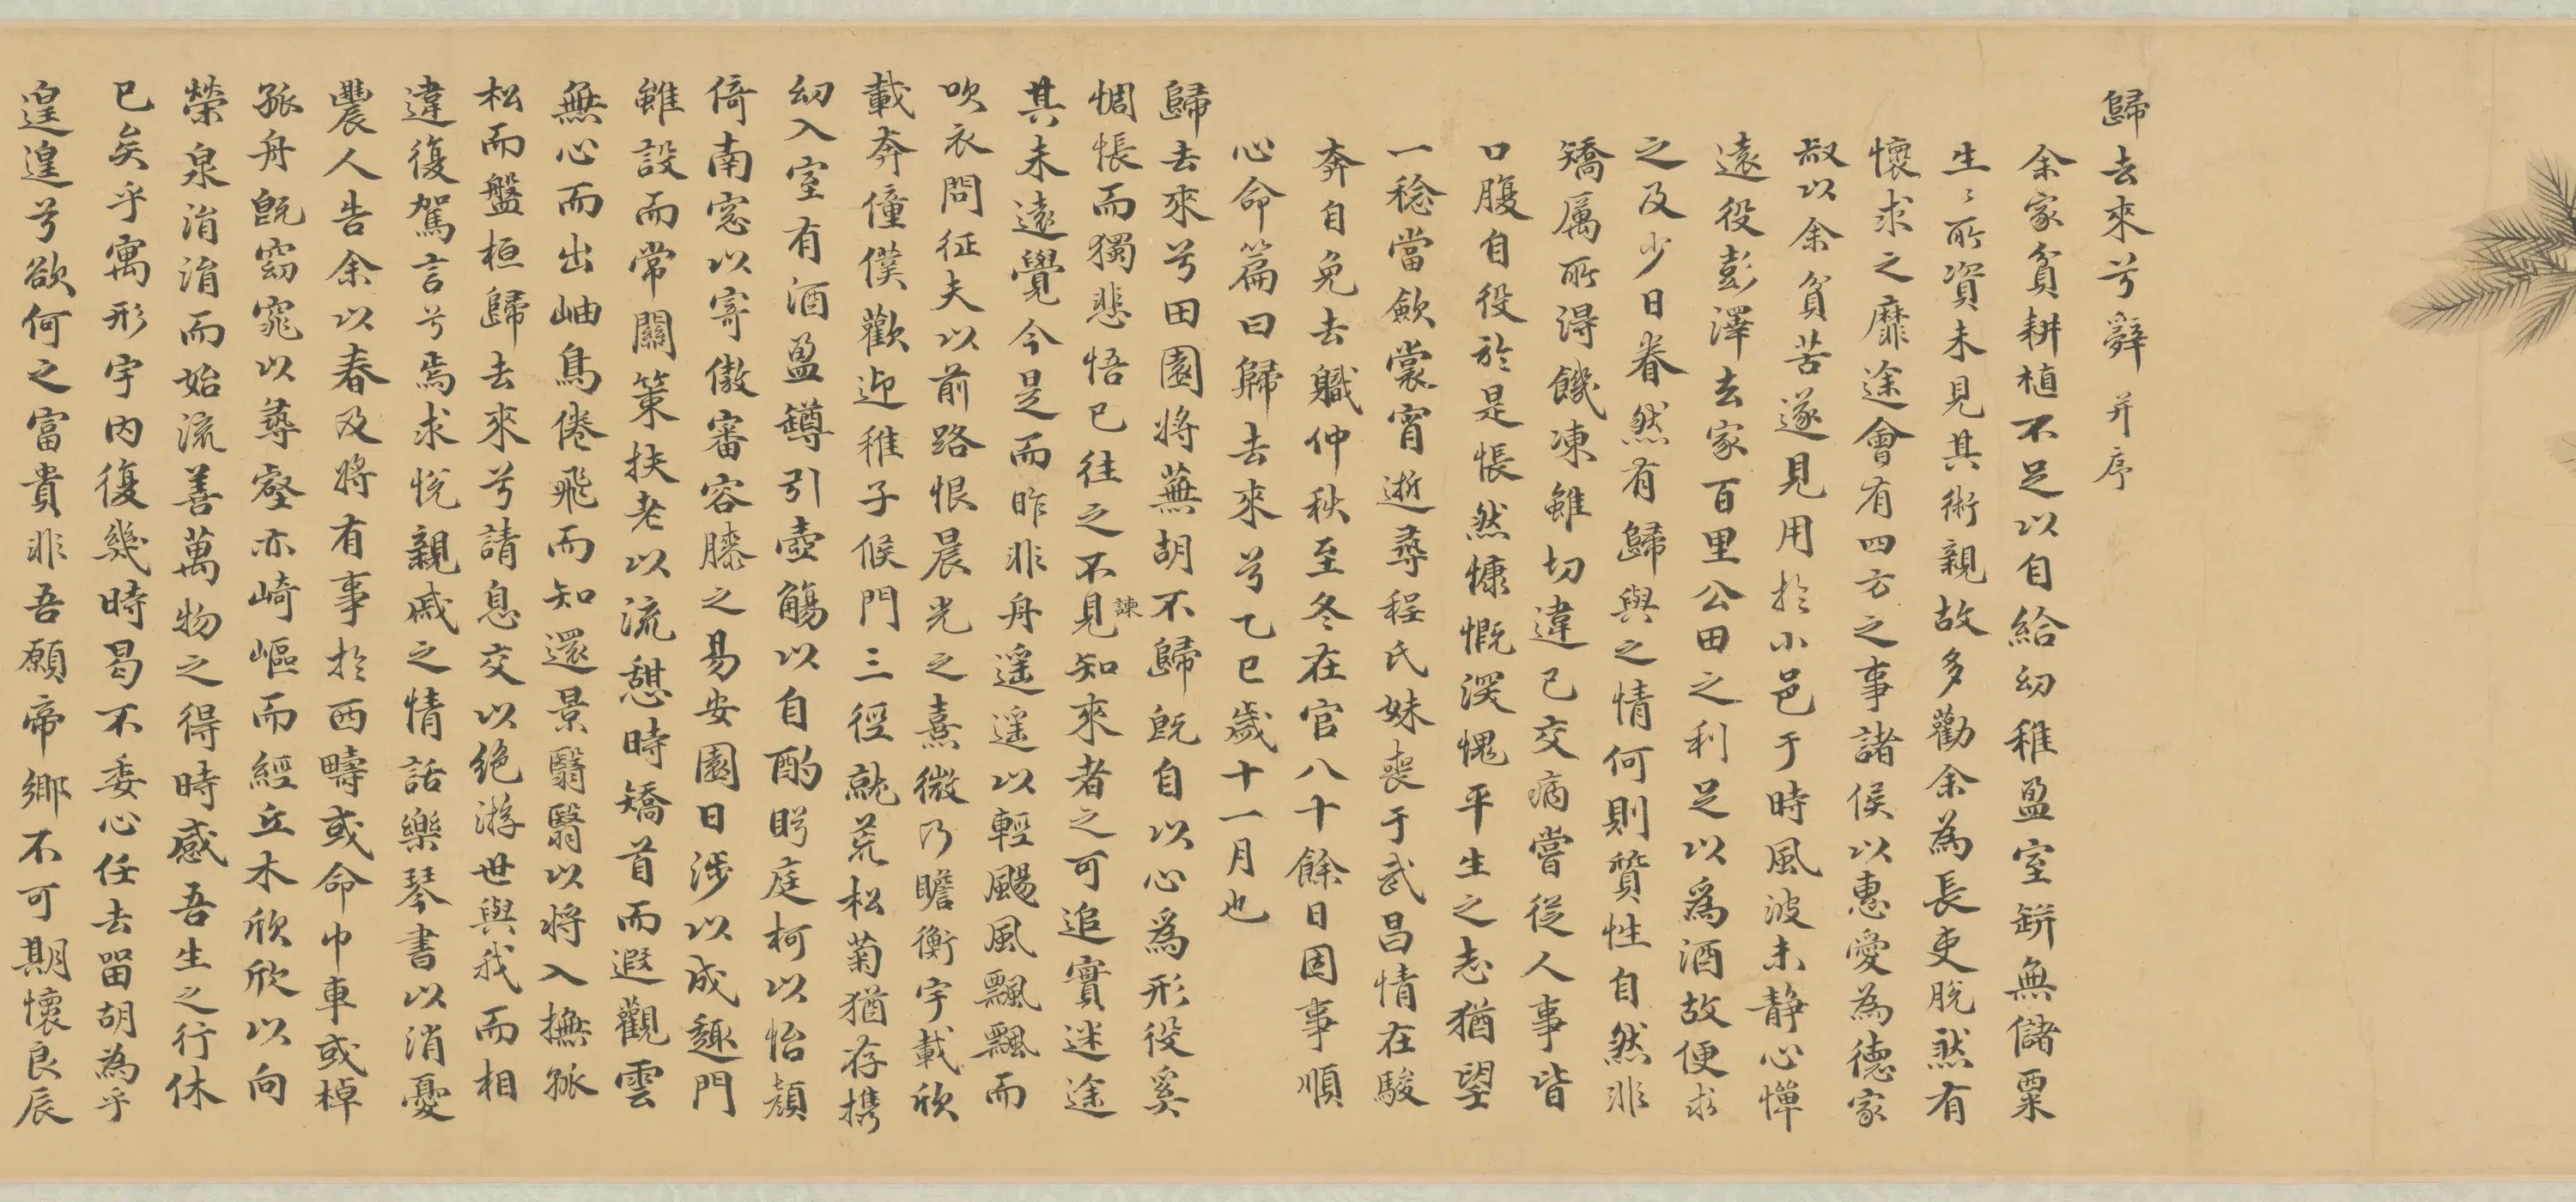 歸去來兮辭并序
余家貧耕植不足以自給幼稚盈室缾無儲粟
生〻所資未見其術親故多勸余為長吏脫然有
懷求之靡途會有四方之事諸侯以惠愛為德家
叔以余貧苦遂見用於小邑于時風波未静心憚
遠役彭澤去家百里公田之利足以爲酒故便求
之及少日眷然有歸與之情何則質性自然非
矯厲所得饑凍雖切違己交病嘗從人事皆
口腹自役於是悵然慷慨深愧平生之志猶望
一稔當斂裳宵逝尋程氏妹喪于武昌情在駿
奔自免去職仲秋至冬在官八十餘日因事順
心命篇曰歸去來兮乙巳歲十一月也
歸去來兮田園將蕪胡不歸既自以心爲形役奚
惆悵而獨悲悟已往之不見諫知來者之可追實迷途
其未遠覺今是而昨非舟遥遥以輕颺風飄飄而
吹衣問征夫以前路恨晨光之熹微乃瞻衡宇載欣
載奔僮僕歡迎稚子候門三徑就荒松菊猶存携
幼入室有酒盈罇引壺觴以自酌眄庭柯以怡顏
倚南窓以寄傲審容膝之易安園日涉以成趣門
雖設而常關策扶老以流憩時矯首而遐觀雲
無心而出岫鳥倦飛而知還景翳翳以將入撫孤
松而盤桓歸去來兮請息交以絕游世與我而相
違復駕言兮焉求悅親戚之情話樂琴書以消憂
農人告余以春及將有事於西疇或命巾車或棹
孤舟既窈窕以尋壑亦崎嶇而經丘木欣欣以向
榮泉涓涓而始流善萬物之得時感吾生之行休
已矣乎寓形宇內復幾時曷不委心任去留胡為乎
遑遑兮欲何之富貴非吾願帝鄉不可期懷良辰